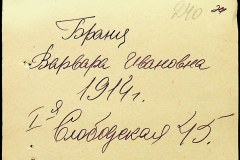 240
Бранц
Варвара Ивановна
1914 г.
I-я Слободская 45.